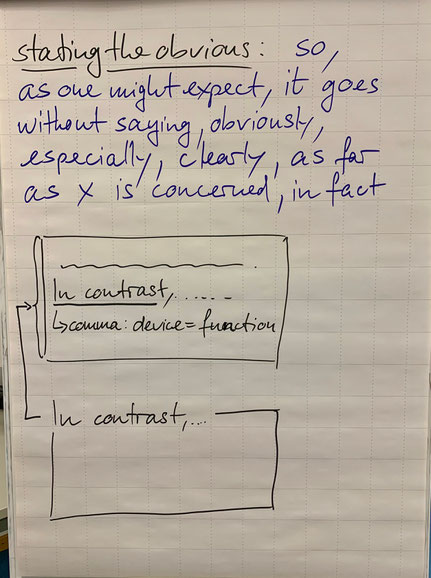 stating the obvious: so,
as one might expect, it goes
without saying, obviously,
especially, clearly, as far
as X is concerned, in fact
In contrast, ......
↳comma: device = function
In contrast, ...